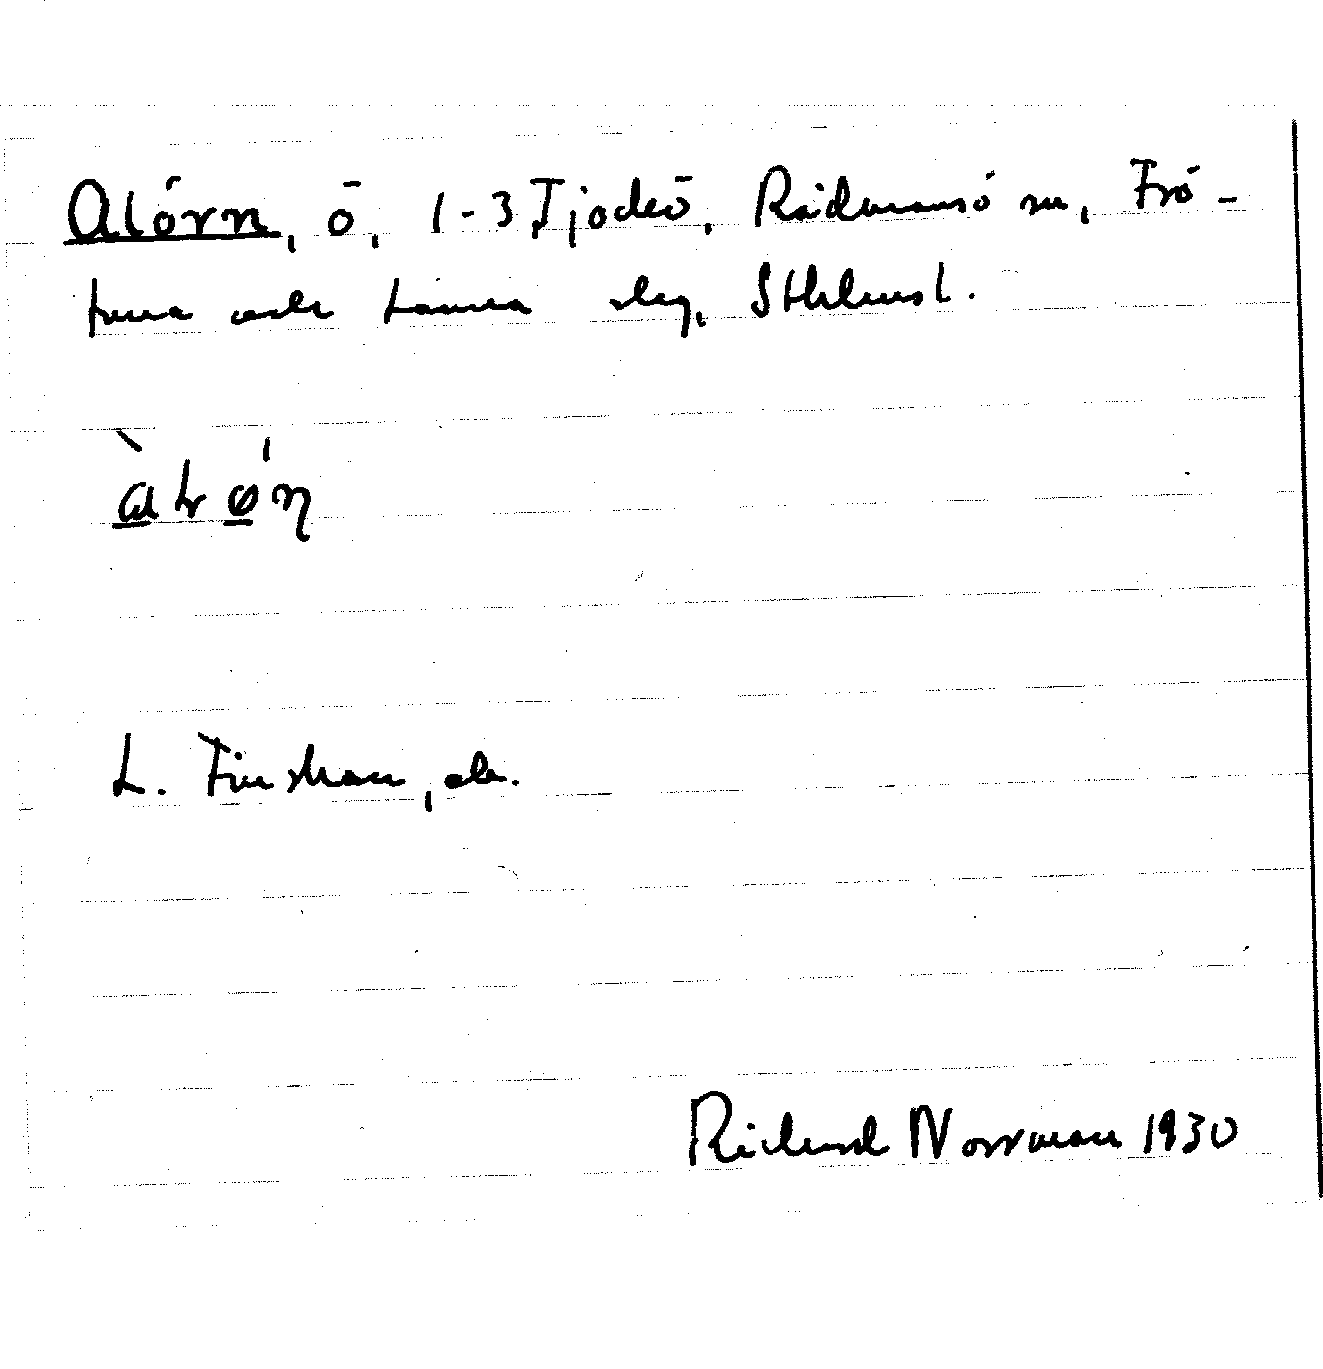 Alörn, ö, 1-3 Tjockö, Rådmansö sn, Frö-
tuna och Länna slg, Sthlmsl.
L. Finskan, ab.
Richard Norrman 1930